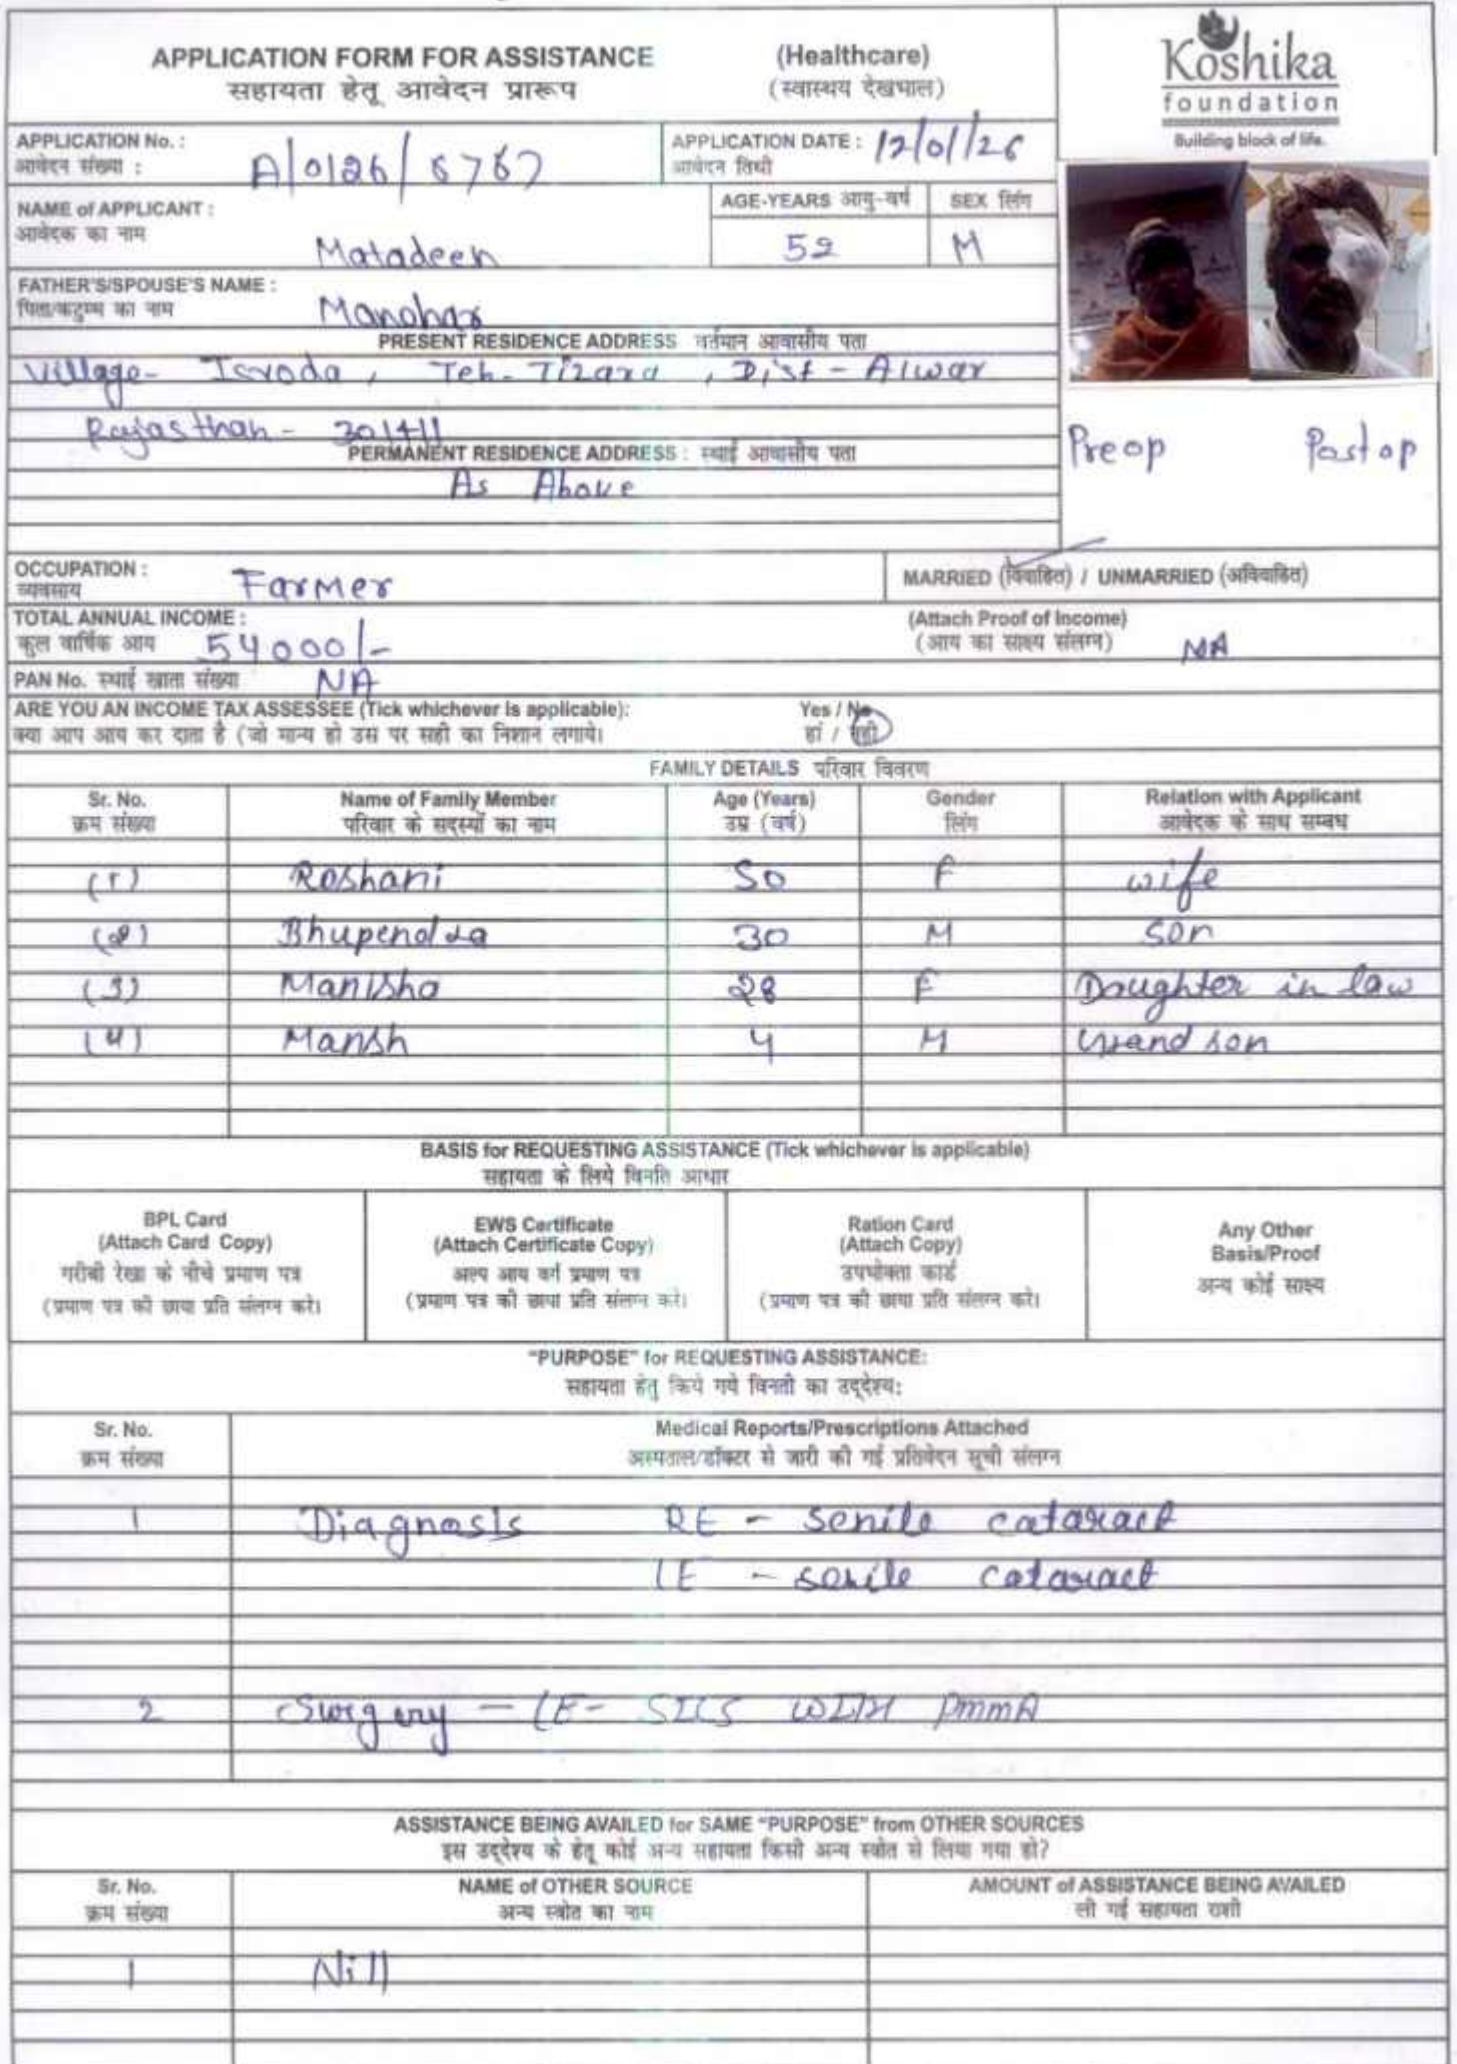 APPLICATION FORM FOR ASSISTANCE (Healthcare)
सहायता हेतू आवेदन प्रारूप (स्वास्थय देखभाल)
Koshika
foundation
Building block of life.
APPLICATION No. : A/0126/6767
आवेदन संख्या :
APPLICATION DATE : 12/01/26
आवेदन तिथी
NAME of APPLICANT : Matadeen
आवेदक का नाम
AGE-YEARS आयु-वर्ष 52
SEX लिंग M
FATHER'S/SPOUSE'S NAME : Manohar
पिता/कटुम्ब का नाम
PRESENT RESIDENCE ADDRESS वर्तमान आवासीय पता
Village- Isroda, Teh- Tizara, Dist - Alwar
Rajasthan - 301411
PERMANENT RESIDENCE ADDRESS : स्थाई आवासीय पता
As Above
Preop Post op
OCCUPATION : Farmer
व्यवसाय
MARRIED (विवाहित) / UNMARRIED (अविवाहित)
TOTAL ANNUAL INCOME : 54000/-
कुल वार्षिक आय
(Attach Proof of Income)
(आय का साक्ष्य संलग्न) NA
PAN No. स्थाई खाता संख्या NA
ARE YOU AN INCOME TAX ASSESSEE (Tick whichever is applicable): Yes / No
क्या आप आय कर दाता है (जो मान्य हो उस पर सही का निशान लगाये। हां / नही
FAMILY DETAILS परिवार विवरण
Sr. No. Name of Family Member Age (Years) Gender Relation with Applicant
क्रम संख्या परिवार के सदस्यों का नाम उम्र (वर्ष) लिंग आवेदक के साथ सम्बध
(1) Roshani 50 F wife
(2) Bhupendra 30 M son
(3) Manisha 28 F Daughter in law
(4) Mansh 4 M Grand son
BASIS for REQUESTING ASSISTANCE (Tick whichever is applicable)
सहायता के लिये विनति आधार
BPL Card
(Attach Card Copy)
गरीबी रेखा के नीचे प्रमाण पत्र
(प्रमाण पत्र की छाया प्रति संलग्न करे।
EWS Certificate
(Attach Certificate Copy)
अल्प आय वर्ग प्रमाण पत्र
(प्रमाण पत्र की छाया प्रति संलग्न करे।
Ration Card
(Attach Copy)
उपभोक्ता कार्ड
(प्रमाण पत्र की छाया प्रति संलग्न करे।
Any Other
Basis/Proof
अन्य कोई साक्ष्य
"PURPOSE" for REQUESTING ASSISTANCE:
सहायता हेतु किये गये विनती का उद्देश्य:
Sr. No. Medical Reports/Prescriptions Attached
क्रम संख्या अस्पताल/डॉक्टर से जारी की गई प्रतिवेदन सूची संलग्न
1 Diagnosis RE - Senile cataract
LE - senile cataract
2 Surgery - LE - SICS WITH PMMA
ASSISTANCE BEING AVAILED for SAME "PURPOSE" from OTHER SOURCES
इस उद्देश्य के हेतू कोई अन्य सहायता किसी अन्य स्त्रोत से लिया गया हो?
Sr. No. NAME of OTHER SOURCE AMOUNT of ASSISTANCE BEING AVAILED
क्रम संख्या अन्य स्त्रोत का नाम ली गई सहायता राशी
1 Nill